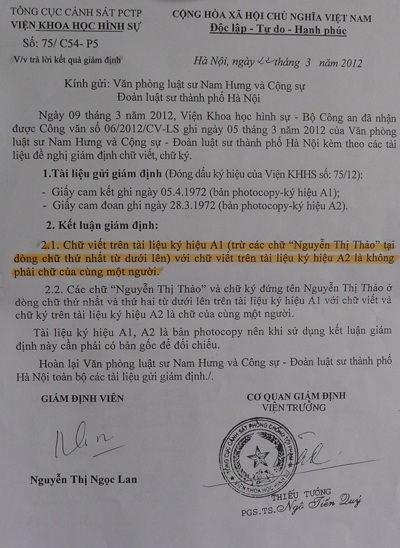 TỔNG CỤC CẢNH SÁT PCTP
VIỆN KHOA HỌC HÌNH SỰ
Số: 75/ C54- P5
V/v trả lời kết quả giám định
CỘNG HÒA XÃ HỘI CHỦ NGHĨA VIỆT NAM
Độc lập - Tự do - Hạnh phúc
Hà Nội, ngày 22 tháng 3 năm 2012
Kính gửi: Văn phòng luật sư Nam Hưng và Cộng sự
Đoàn luật sư thành phố Hà Nội
Ngày 09 tháng 3 năm 2012, Viện Khoa học hình sự - Bộ Công an đã nhận
được Công văn số 06/2012/CV-LS ghi ngày 05 tháng 3 năm 2012 của Văn phòng
luật sư Nam Hưng và Cộng sự - Đoàn luật sư thành phố Hà Nội kèm theo các tài
liệu đề nghị giám định chữ viết, chữ ký.
1.Tài liệu gửi giám định (Đóng dấu ký hiệu của Viện KHHS số: 75/12):
- Giấy cam kết ghi ngày 05.4.1972 (bản photocopy-ký hiệu A1);
- Giấy cam đoan ghi ngày 28.3.1972 (bản photocopy-ký hiệu A2).
2. Kết luận giám định:
2.1. Chữ viết trên tài liệu ký hiệu A1 (trừ các chữ “Nguyễn Thị Thảo” tại
dòng chữ thứ nhất từ dưới lên) với chữ viết trên tài liệu ký hiệu A2 là không
phải chữ của cùng một người.
2.2. Các chữ “Nguyễn Thị Thảo” và chữ ký đứng tên Nguyễn Thị Thảo ở
dòng chữ thứ nhất và thứ hai từ dưới lên trên tài liệu ký hiệu A1 với chữ viết và
chữ ký trên tài liệu ký hiệu A2 là chữ của cùng một người.
Tài liệu ký hiệu A1, A2 là bản photocopy nên khi sử dụng kết luận giám
định này cần phải có bản gốc để đối chiếu.
Hoàn lại Văn phòng luật sư Nam Hưng và Cộng sự - Đoàn luật sư thành phố
Hà Nội toàn bộ các tài liệu gửi giám định./.
GIÁM ĐỊNH VIÊN
Nguyễn Thị Ngọc Lan
CƠ QUAN GIÁM ĐỊNH
VIỆN TRƯỞNG
TỔNG CỤC CẢNH SÁT PHÒNG CHỐNG TỘI PHẠM
VIỆN KHOA HỌC HÌNH SỰ
THIẾU TƯỚNG
PGS.TS. Ngô Tiến Quý